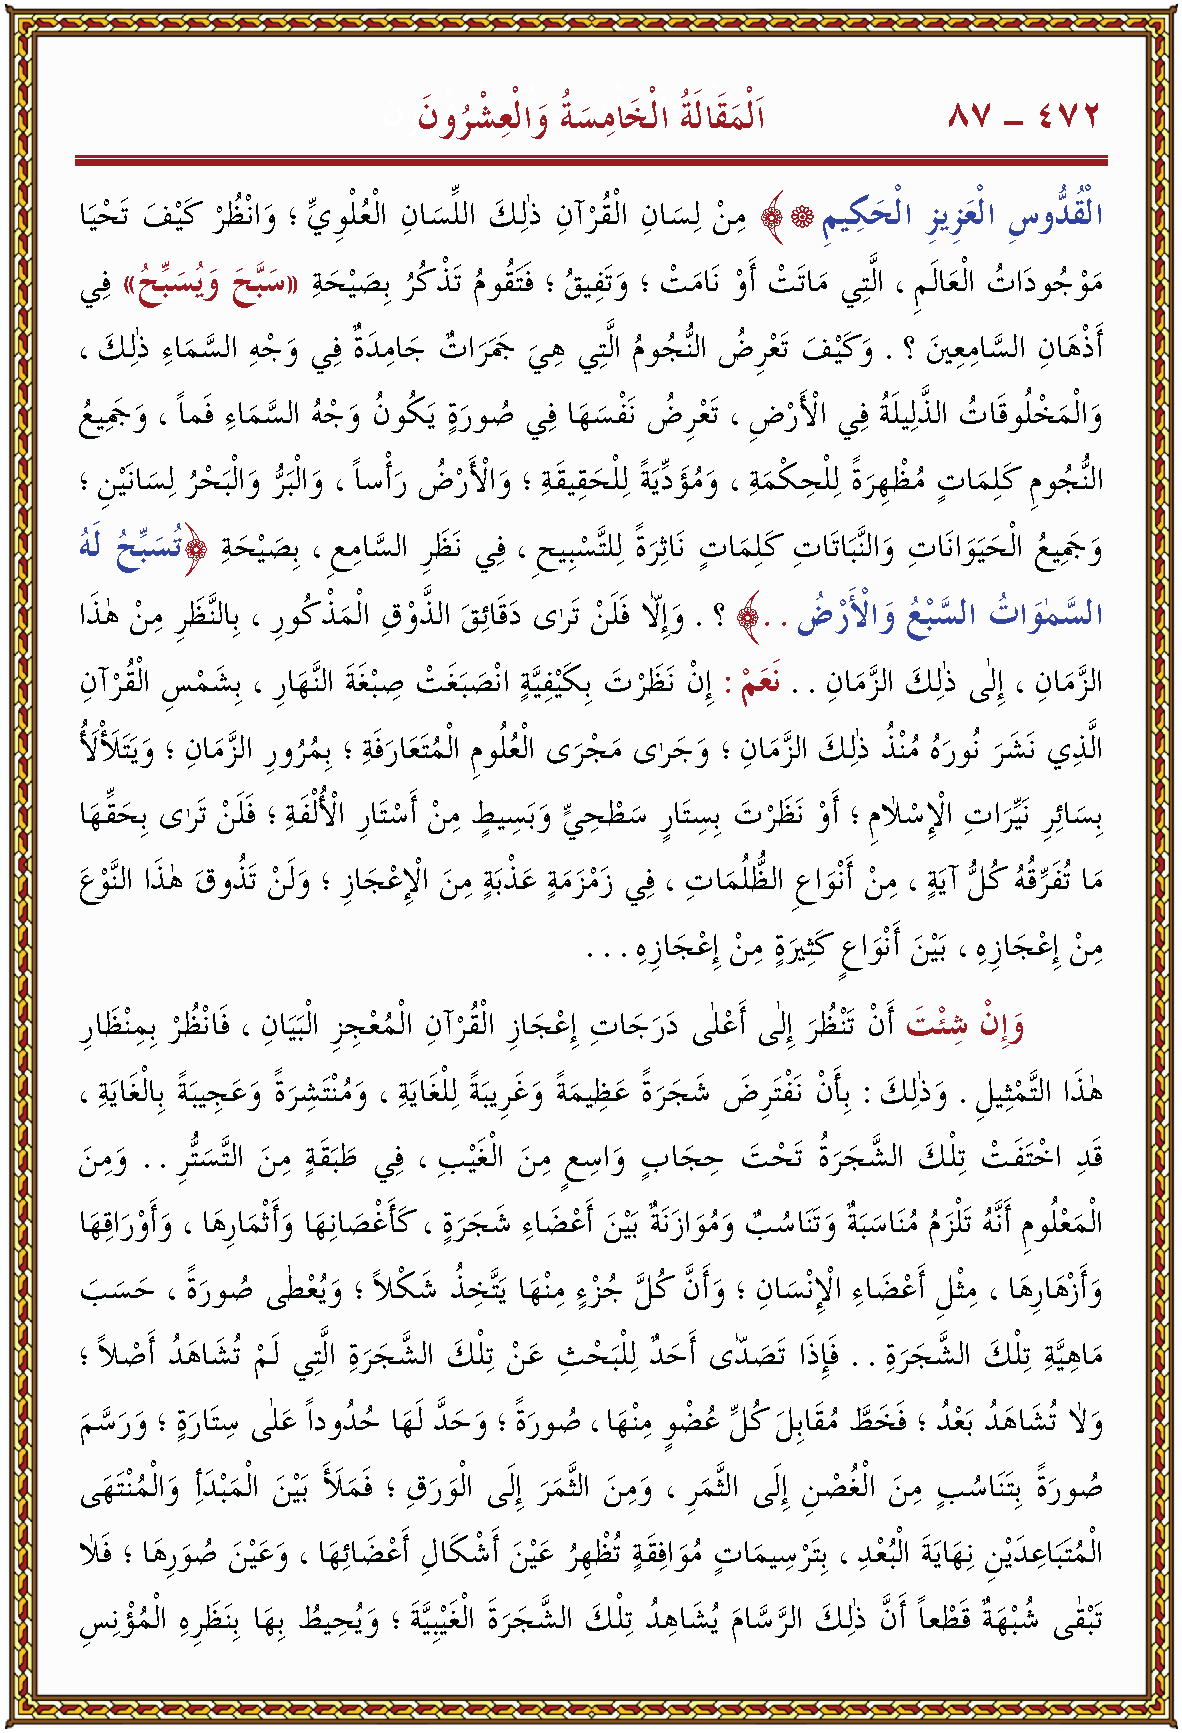 ٤٧٢ – ٨٧ اَلْمَقَالَةُ الْخَامِسَةُ وَالْعِشْرُونَ
الْقُدُّوسِ الْعَزِيزِ الْحَكِيمِ ۞ ﴾ مِنْ لِسَانِ الْقُرْآنِ ذٰلِكَ اللِّسَانِ الْعُلْوِيِّ ؛ وَانْظُرْ كَيْفَ تَحْيَا
مَوْجُودَاتُ الْعَالَمِ ، الَّتِي مَاتَتْ أَوْ نَامَتْ ؛ وَتَفِيقُ ؛ فَتَقُومُ تَذْكُرُ بِصَيْحَةِ «سَبَّحَ وَيُسَبِّحُ» فِي
أَذْهَانِ السَّامِعِينَ ؟ . وَكَيْفَ تَعْرِضُ النُّجُومُ الَّتِي هِيَ جَمَرَاتٌ جَامِدَةٌ فِي وَجْهِ السَّمَاءِ ذٰلِكَ ،
وَالْمَخْلُوقَاتُ الذَّلِيلَةُ فِي الْأَرْضِ ، تَعْرِضُ نَفْسَهَا فِي صُورَةٍ يَكُونُ وَجْهُ السَّمَاءِ فَماً ، وَجَمِيعُ
النُّجُومِ كَلِمَاتٍ مُظْهِرَةً لِلْحِكْمَةِ ، وَمُؤَدِّيَةً لِلْحَقِيقَةِ ؛ وَالْأَرْضُ رَأْساً ، وَالْبَرُّ وَالْبَحْرُ لِسَانَيْنِ ؛
وَجَمِيعُ الْحَيَوَانَاتِ وَالنَّبَاتَاتِ كَلِمَاتٍ نَاثِرَةً لِلتَّسْبِيحِ ، فِي نَظَرِ السَّامِعِ ، بِصَيْحَةِ ﴿ تُسَبِّحُ لَهُ
السَّمٰوَاتُ السَّبْعُ وَالْأَرْضُ . . ﴾ ؟ . وَإِلاَّ فَلَنْ تَرٰى دَقَائِقَ الذَّوْقِ الْمَذْكُورِ ، بِالنَّظَرِ مِنْ هٰذَا
الزَّمَانِ ، إِلٰى ذٰلِكَ الزَّمَانِ . . نَعَمْ : إِنْ نَظَرْتَ بِكَيْفِيَّةٍ انْصَبَغَتْ صِبْغَةَ النَّهَارِ ، بِشَمْسِ الْقُرْآنِ
الَّذِي نَشَرَ نُورَهُ مُنْذُ ذٰلِكَ الزَّمَانِ ؛ وَجَرٰى مَجْرَى الْعُلُومِ الْمُتَعَارَفَةِ ؛ بِمُرُورِ الزَّمَانِ ؛ وَيَتَلَأْلَأُ
بِسَائِرِ نَيِّرَاتِ الْإِسْلاٰمِ ؛ أَوْ نَظَرْتَ بِسِتَارٍ سَطْحِيٍّ وَبَسِيطٍ مِنْ أَسْتَارِ الْأُلْفَةِ ؛ فَلَنْ تَرٰى بِحَقِّهَا
مَا تُفَرِّقُهُ كُلُّ آيَةٍ ، مِنْ أَنْوَاعِ الظُّلُمَاتِ ، فِي زَمْزَمَةٍ عَذْبَةٍ مِنَ الْإِعْجَازِ ؛ وَلَنْ تَذُوقَ هٰذَا النَّوْعَ
مِنْ إِعْجَازِهِ ، بَيْنَ أَنْوَاعٍ كَثِيرَةٍ مِنْ إِعْجَازِهِ . . .
وَإِنْ شِئْتَ أَنْ تَنْظُرَ إِلٰى أَعْلٰى دَرَجَاتِ إِعْجَازِ الْقُرْآنِ الْمُعْجِزِ الْبَيَانِ ، فَانْظُرْ بِمِنْظَارِ
هٰذَا التَّمْثِيلِ . وَذٰلِكَ : بِأَنْ نَفْتَرِضَ شَجَرَةً عَظِيمَةً وَغَرِيبَةً لِلْغَايَةِ ، وَمُنْتَشِرَةً وَعَجِيبَةً بِالْغَايَةِ ،
قَدِ اخْتَفَتْ تِلْكَ الشَّجَرَةُ تَحْتَ حِجَابٍ وَاسِعٍ مِنَ الْغَيْبِ ، فِي طَبَقَةٍ مِنَ التَّسَتُّرِ . . وَمِنَ
الْمَعْلُومِ أَنَّهُ تَلْزَمُ مُنَاسَبَةٌ وَتَنَاسُبٌ وَمُوَازَنَةٌ بَيْنَ أَعْضَاءِ شَجَرَةٍ ، كَأَغْصَانِهَا وَأَثْمَارِهَا ، وَأَوْرَاقِهَا
وَأَزْهَارِهَا ، مِثْلِ أَعْضَاءِ الْإِنْسَانِ ؛ وَأَنَّ كُلَّ جُزْءٍ مِنْهَا يَتَّخِذُ شَكْلاً ؛ وَيُعْطٰى صُورَةً ، حَسَبَ
مَاهِيَّةِ تِلْكَ الشَّجَرَةِ . . فَإِذَا تَصَدّٰى أَحَدٌ لِلْبَحْثِ عَنْ تِلْكَ الشَّجَرَةِ الَّتِي لَمْ تُشَاهَدُ أَصْلاً ؛
وَلاٰ تُشَاهَدُ بَعْدُ ؛ فَخَطَّ مُقَابِلَ كُلِّ عُضْوٍ مِنْهَا ، صُورَةً ؛ وَحَدَّ لَهَا حُدُوداً عَلٰى سِتَارَةٍ ؛ وَرَسَّمَ
صُورَةً بِتَنَاسُبٍ مِنَ الْغُصْنِ إِلَى الثَّمَرِ ، وَمِنَ الثَّمَرَ إِلَى الْوَرَقِ ؛ فَمَلَأَ بَيْنَ الْمَبْدَأِ وَالْمُنْتَهَى
الْمُتَبَاعِدَيْنِ نِهَايَةَ الْبُعْدِ ، بِتَرْسِيمَاتٍ مُوَافِقَةٍ تُظْهِرُ عَيْنَ أَشْكَالِ أَعْضَائِهَا ، وَعَيْنَ صُوَرِهَا ؛ فَلاٰ
تَبْقٰى شُبْهَةٌ قَطْعاً أَنَّ ذٰلِكَ الرَّسَّامَ يُشَاهِدُ تِلْكَ الشَّجَرَةَ الْغَيْبِيَّةَ ؛ وَيُحِيطُ بِهَا بِنَظَرِهِ الْمُؤْنِسِ